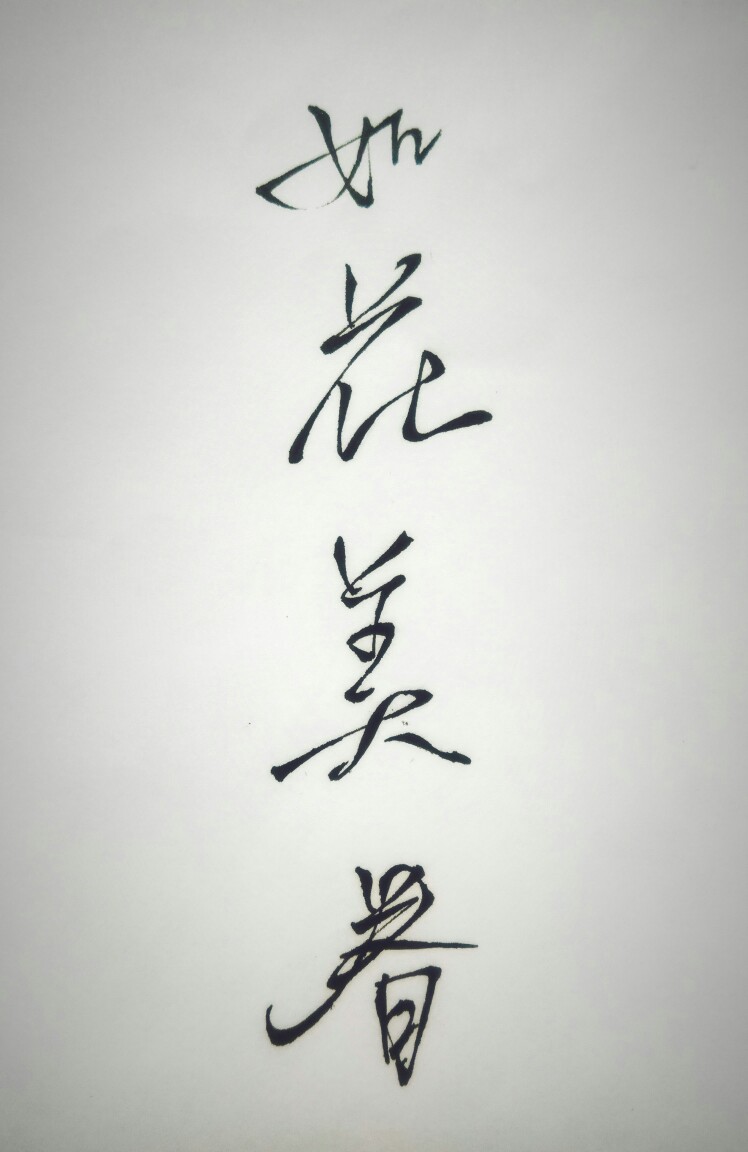 如花美眷